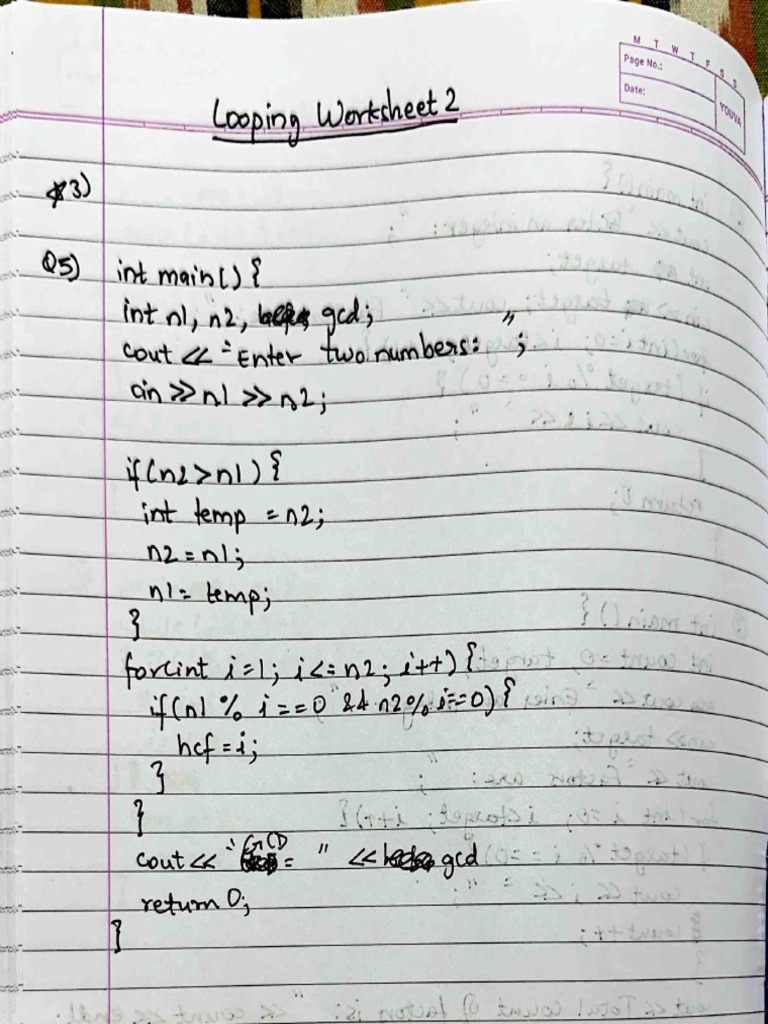 M T W T F S S
Page No.:
Date:
YOUVA
Looping Worksheet 2
3)
Q5) int main() {
int n1, n2, gcd;
cout << "Enter two numbers: ";
cin >> n1 >> n2;
if(n2>n1) {
int temp = n2;
n2 = n1;
n1 = temp;
}
for(int i=1; i<=n2; i++) {
if(n1 % i==0 && n2% i==0) {
hcf = i;
}
}
cout << "GCD = " << gcd
return 0;
}